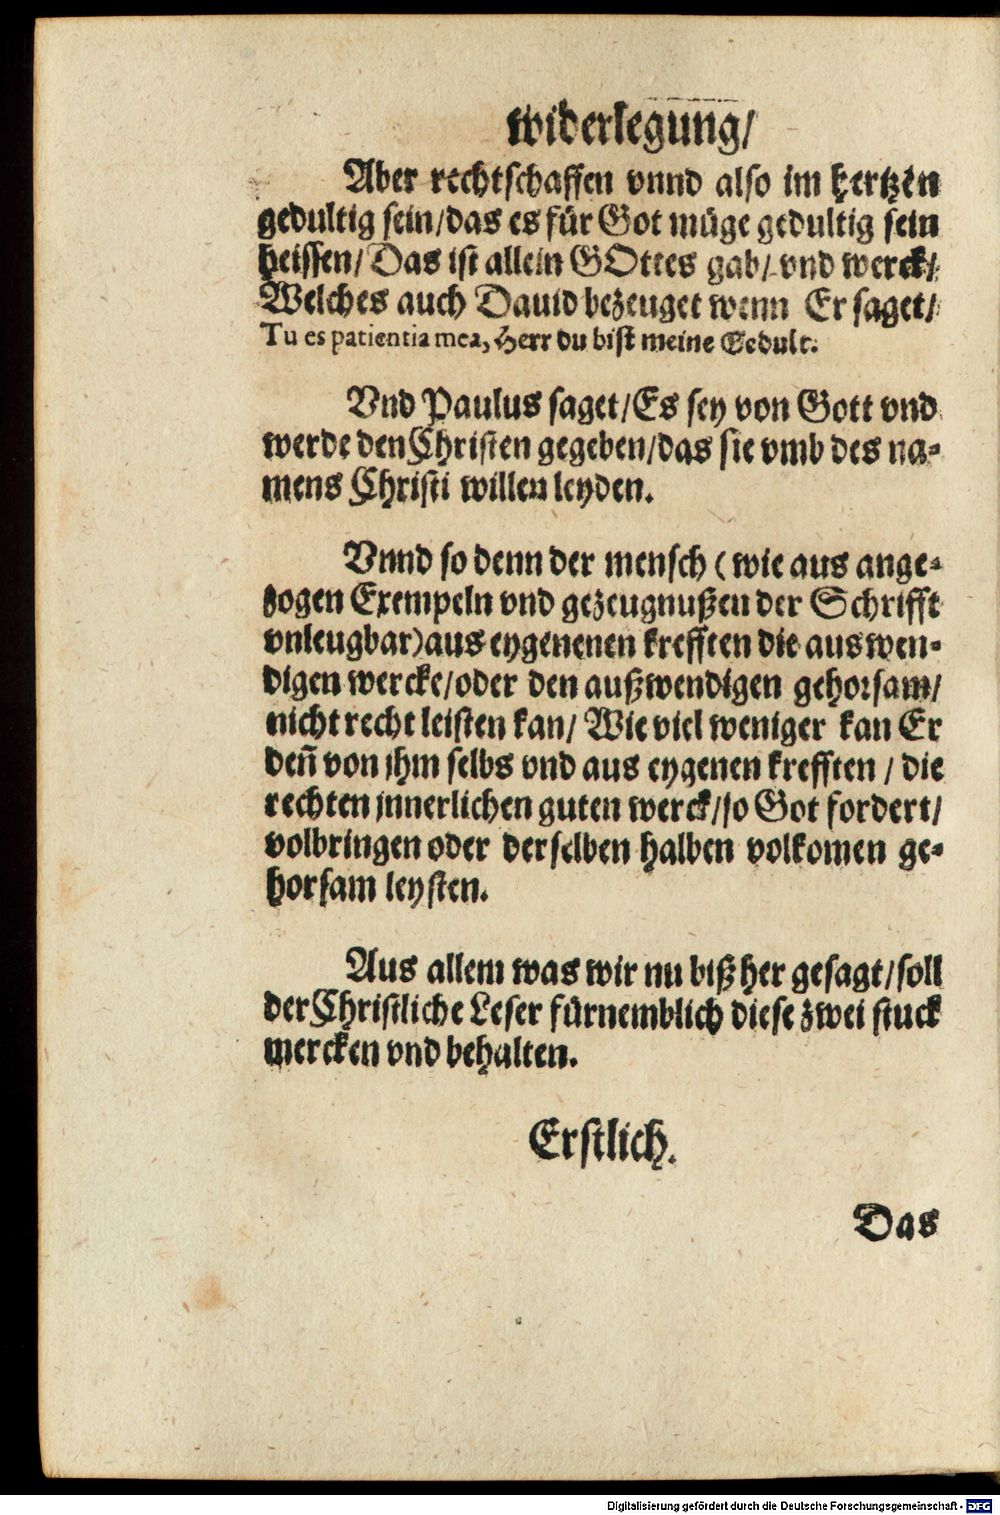 widerlegung/
Aber rechtschaffen vnnd also im hertzen
gedultig sein/das es für Got müge gedultig sein
heissen/Das ist allein GOttes gab/vnd werck/
Welches auch Dauid bezeuget wenn Er saget/
Tu es patientia mea, Herr du bist meine Gedult.
Vnd Paulus saget/Es sey von Gott vnd
werde den Christen gegeben/das sie vmb des na-
mens Christi willen leyden.
Vnnd so denn der mensch (wie aus ange-
zogen Exempeln vnd gezeugnußen der Schrifft
vnleugbar)aus eygenenen krefften die auswen-
digen wercke/oder den außwendigen gehorsam/
nicht recht leisten kan/ Wie viel weniger kan Er
den̄ von jhm selbs vnd aus eygenen krefften / die
rechten jnnerlichen guten werck/so Got fordert/
volbringen oder derselben halben volkomen ge-
horsam leysten.
Aus allem was wir nu biß her gesagt/soll
der Christliche Leser fürnemblich diese zwei stuck
mercken vnd behalten.
Erstlich.
Das
Digitalisierung gefördert durch die Deutsche Forschungsgemeinschaft - DFG